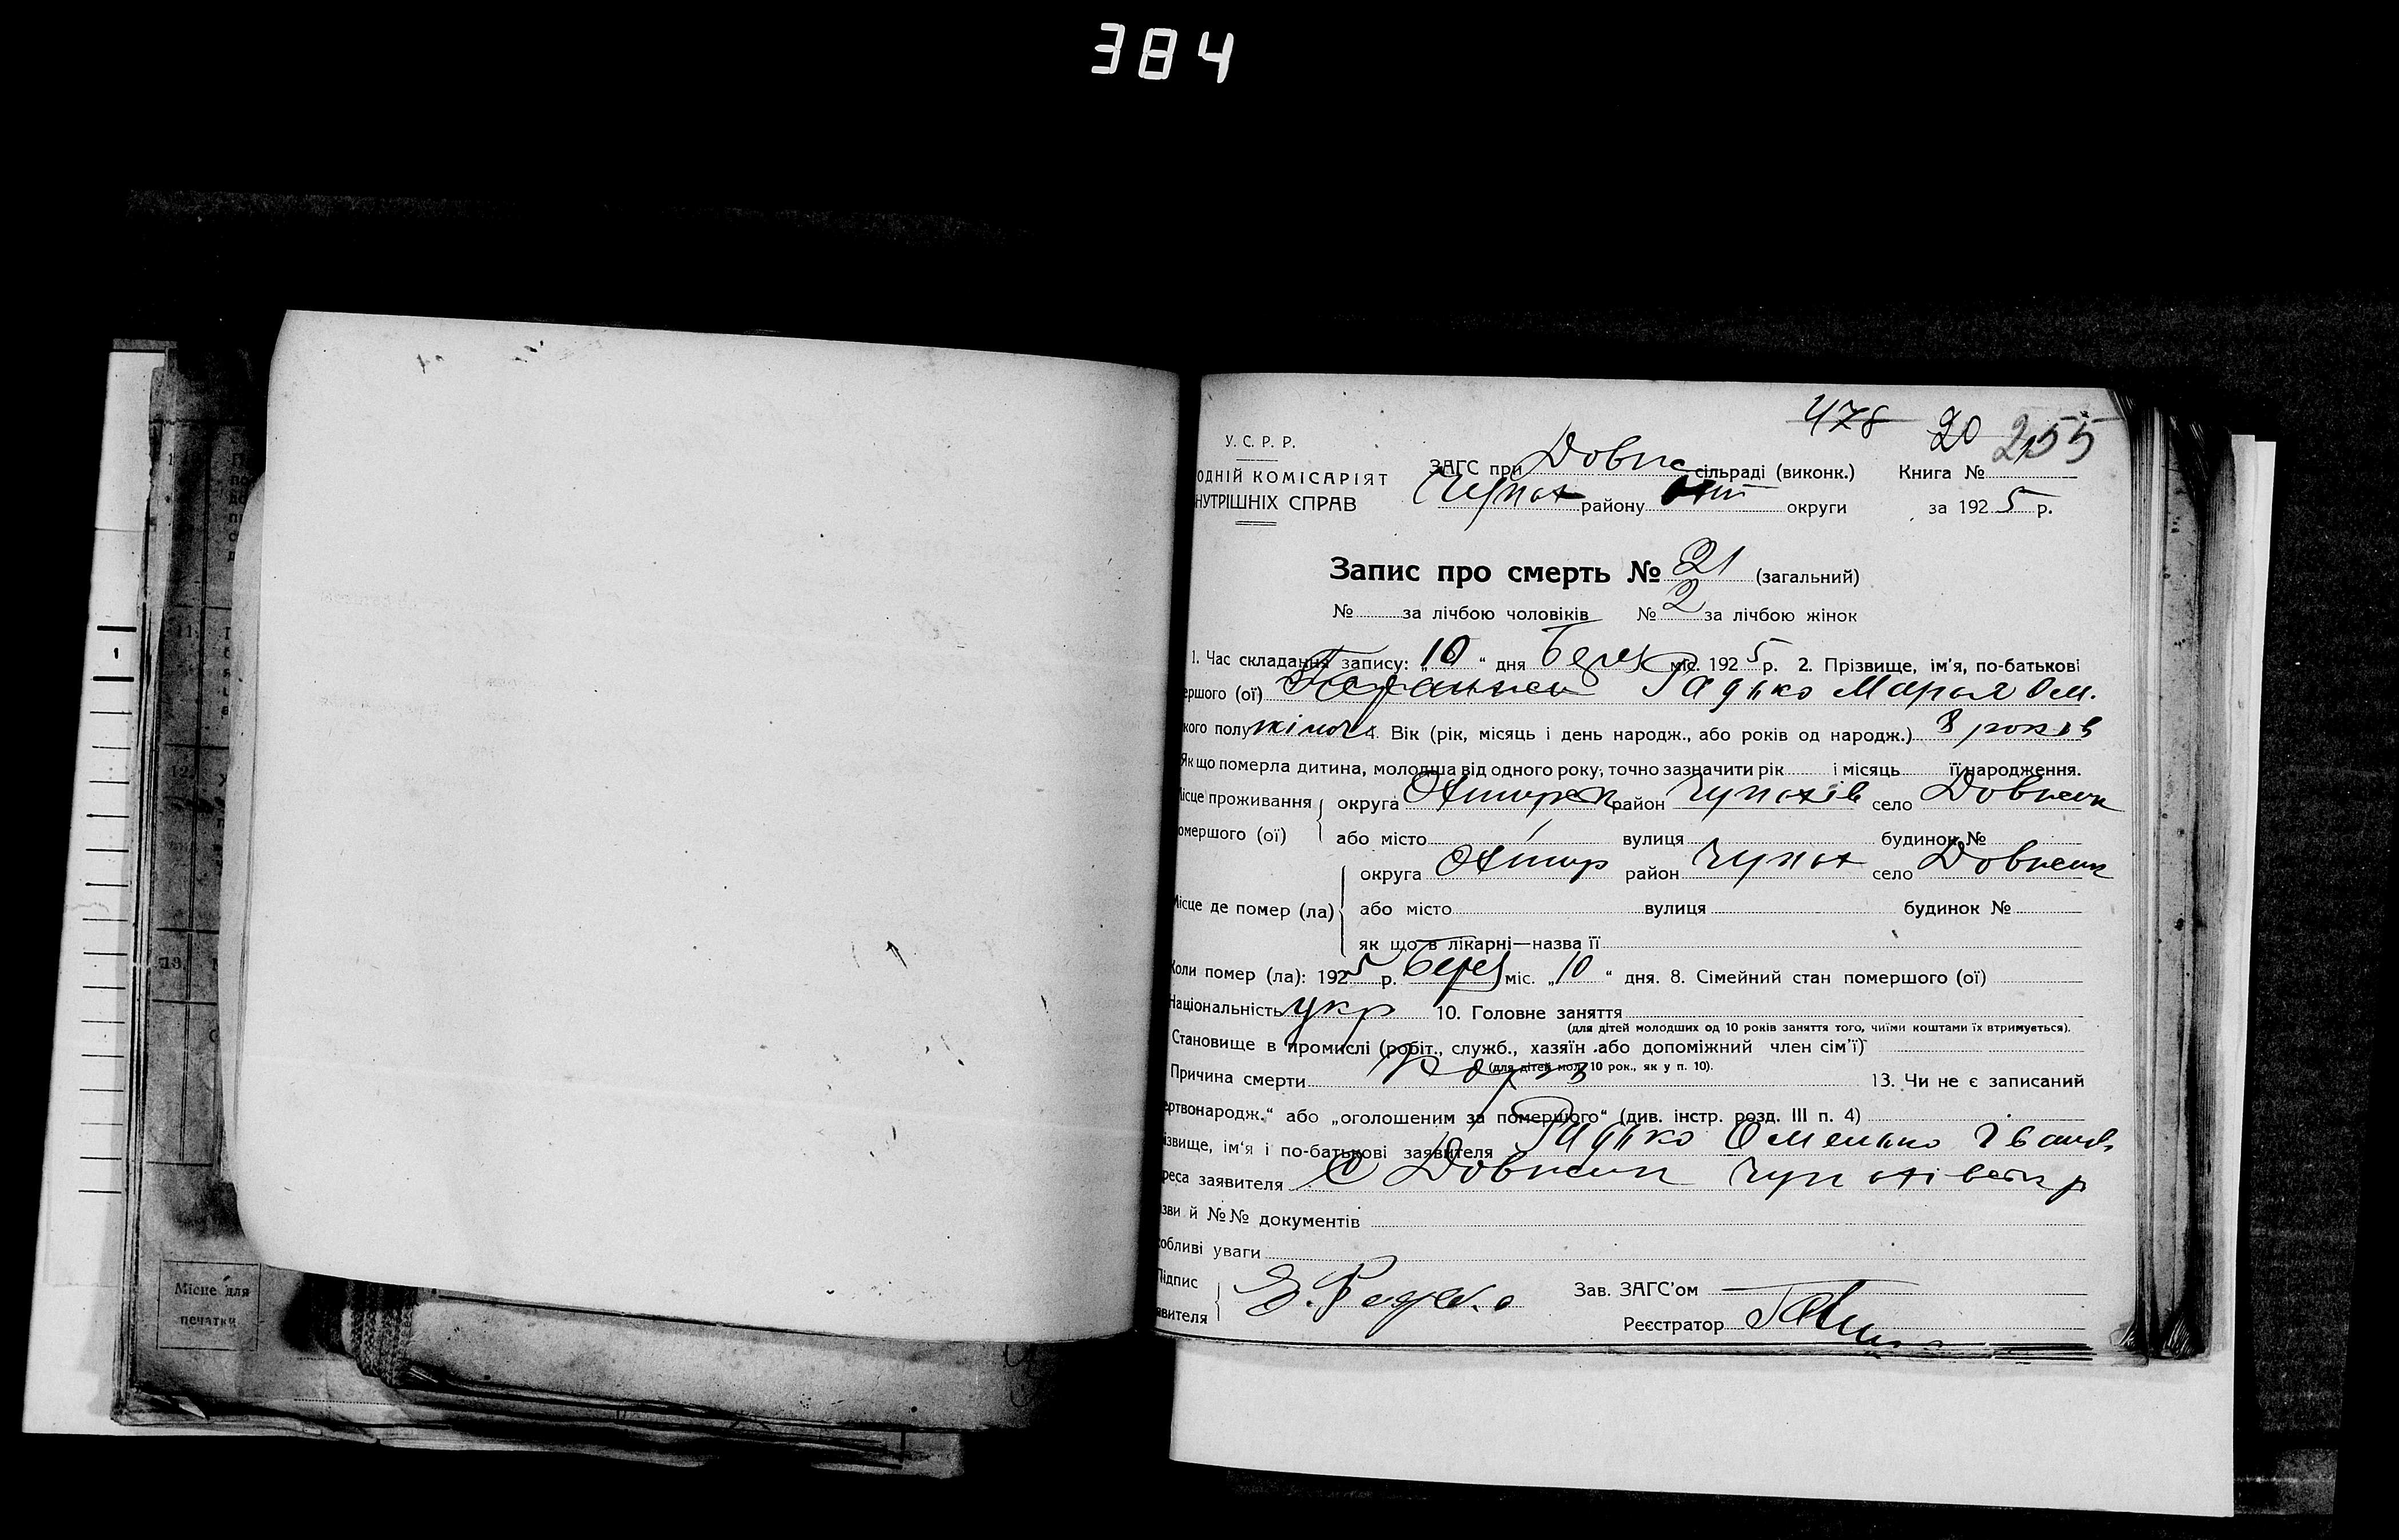 384
478 20 255
У. С. Р. Р.
ОДНІЙ КОМІСАРІЯТ
НУТРІШНІХ СПРАВ
ЗАГС при Довж сільраді (виконк.) Книга №
Чупах району Охт округи за 1925 р.
Запис про смерть № 21 (загальний)
№ за лічбою чоловіків № 2 за лічбою жінок
1. Час складання запису: „10“ дня берез міс. 1925 р. 2. Прізвище, ім'я, по-батькові
ершого (ої) Радько Марья Ом.
кого полу жіноч 4. Вік (рік, місяць і день народж., або років од народж.) 8 років
Як що померла дитина, молодша від одного року, точно зазначити рік і місяць її народження.
ісце проживання округа Охтирськ район Чупахів село Довжик
омершого (ої) або місто вулиця будинок №
округа Охтир район Чупах село Довжик
ісце де помер (ла) або місто вулиця будинок №
як що в лікарні—назва її
Коли помер (ла): 1925 р. Берез міс. „10“ дня. 8. Сімейний стан помершого (ої)
Національність укр 10. Головне заняття
(для дітей молодших од 10 років заняття того, чиїми коштами їх втримується).
Становище в промислі (робіт., служб., хазяїн або допоміжний член сім'ї)
(для дітей мол. 10 рок., як у п. 10).
Причина смерти 13. Чи не є записаний
ертвонародж.“ або „оголошеним за помершого“ (див. інстр. розд. III п. 4)
ізвище, ім'я і по-батькові заявителя Радько Омелько Іванов
реса заявителя С Довжик Чупахівськ р
зви й №№ документів
обливі уваги
Підпис Зав. ЗАГС'ом
явителя Е. Радько
Реєстратор
11.
12.
13.
Місце для
печатки
1